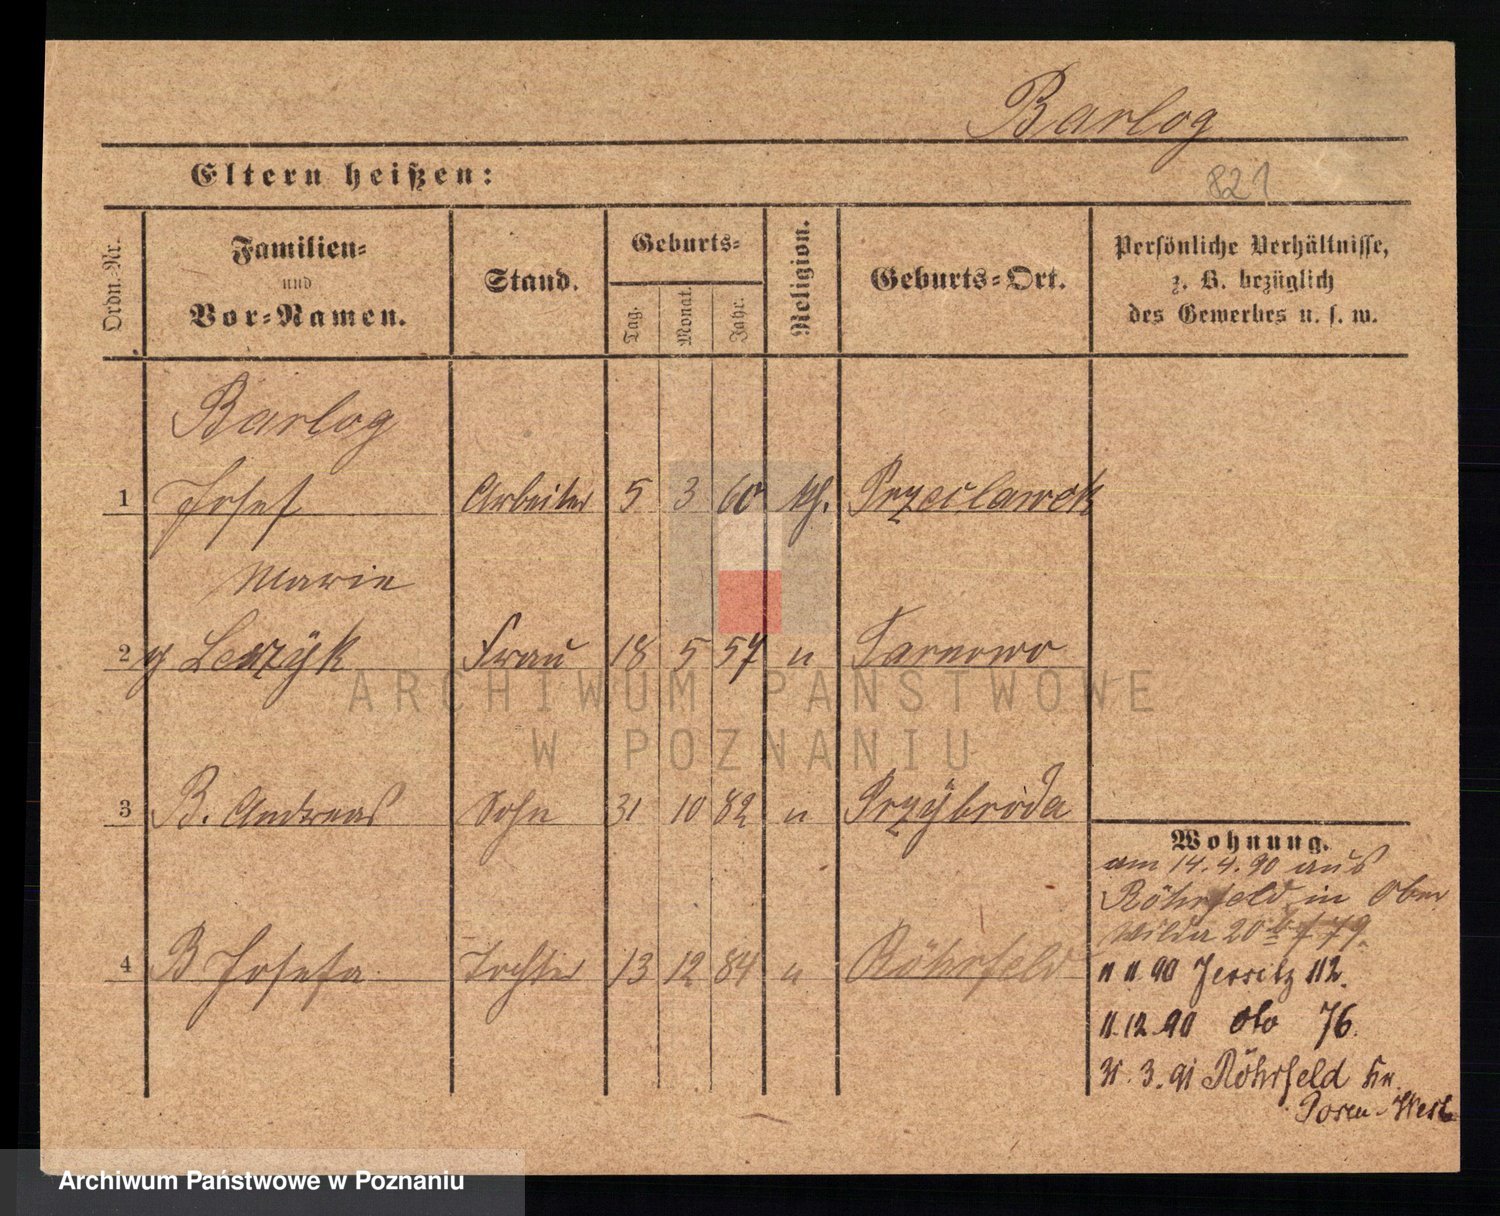 Barlog
Eltern heißen:
821
Ordn.-Nr.
Familien-
und
Vor-Namen.
Stand.
Geburts-
Tag.
Monat.
Jahr.
Religion.
Geburts-Ort.
Persönliche Verhältnisse,
z. B. bezüglich
des Gewerbes u. s. w.
Barlog
1 Josef Arbeiter 5 3 60 kth. Przeclawek
Marie
2 g Leczÿk Frau 18 5 57 u Tarnowo
3 B. Andreas Sohn 31 10 82 u Przÿbroda
4 B Josefa Tochter 13 12 84 u Röhrfeld
Wohnung.
am 14.4.90 aus
Röhrfeld in Ober
Wilda 20
11 11.90 Jersitz 112.
11.12.90 dto 76.
31.3.91 Röhrfeld Kr.
Posen-West
ARCHIWUM PAŃSTWOWE
W POZNANIU
Archiwum Państwowe w Poznaniu